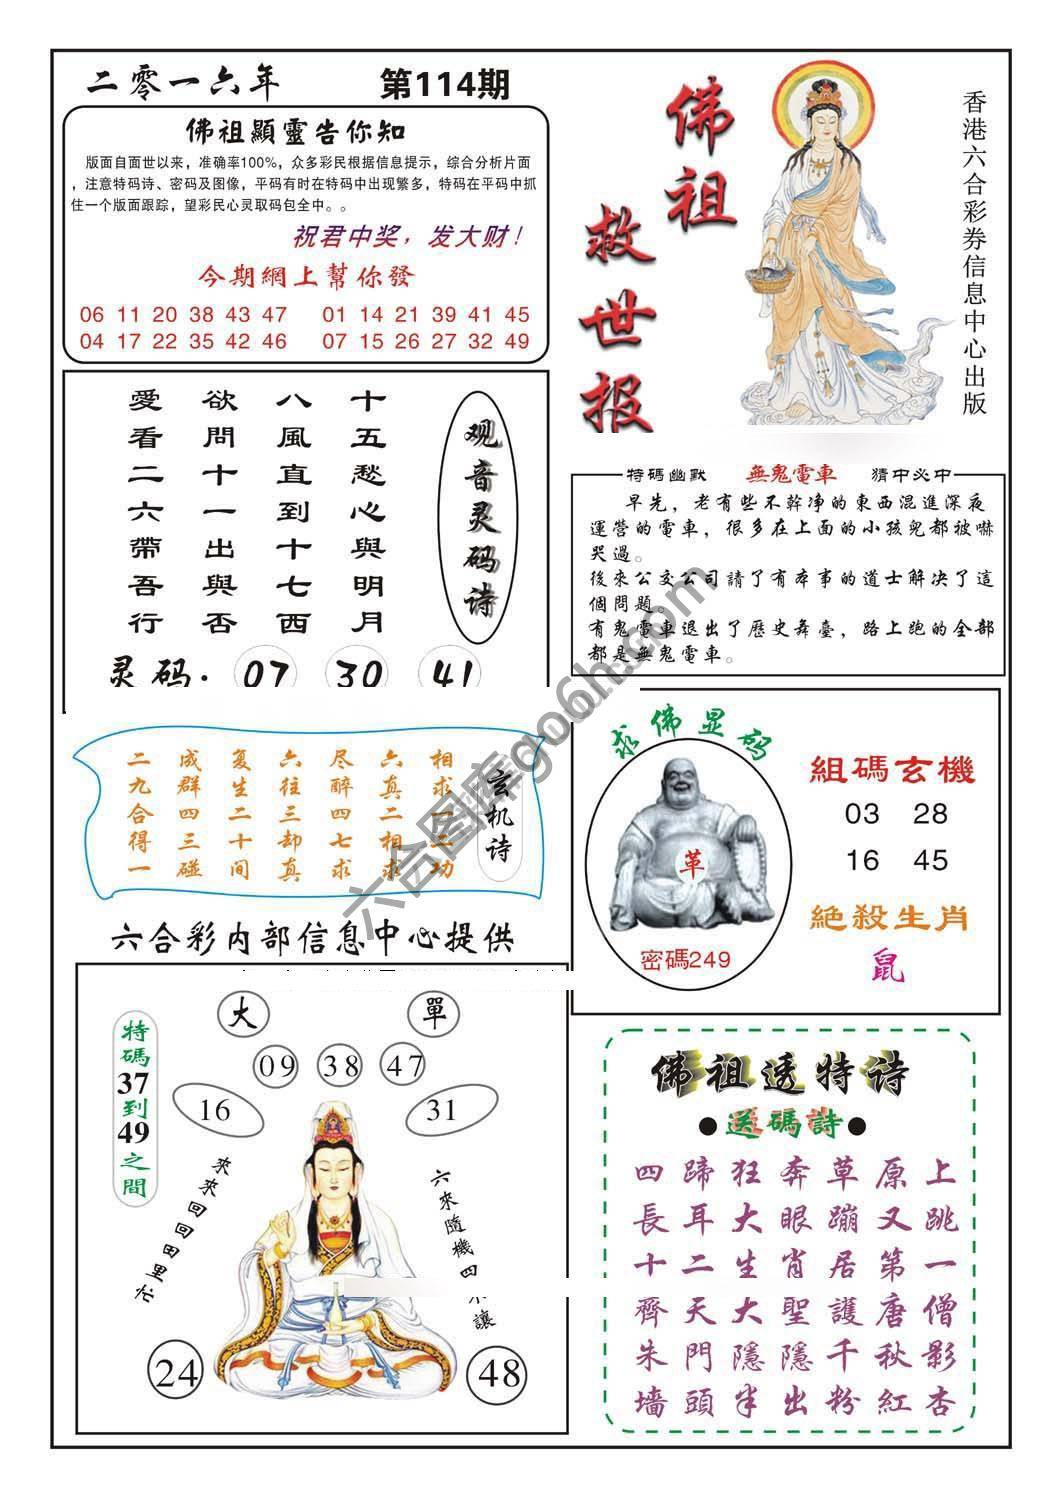 二零一六年 第114期
佛祖顯靈告你知
版面自面世以来，准确率100%，众多彩民根据信息提示，综合分析片面
，注意特码诗、密码及图像，平码有时在特码中出现繁多，特码在平码中抓
住一个版面跟踪，望彩民心灵取码包全中。。
祝君中奖，发大财！
今期網上幫你發
06 11 20 38 43 47 01 14 21 39 41 45
04 17 22 35 42 46 07 15 26 27 32 49
佛祖
救世报
香港六合彩券信息中心出版
观音灵码诗
十五愁心與明月
八風直到十七西
欲問十一出與否
愛看二六帶吾行
灵码. 07 30 41
特碼幽默 無鬼電車 猜中必中
早先，老有些不幹净的東西混進深夜
運營的電車，很多在上面的小孩兒都被嚇
哭過。
後來公交公司請了有本事的道士解决了這
個問題。
有鬼電車退出了歷史舞臺，路上跑的全部
都是無鬼電車。
玄机诗
相求一二功
六真二相求
尽醉四七求
六往三却真
复生二十间
成群四三碰
二九合得一
求佛显码
革
密碼249
組碼玄機
03 28
16 45
絶殺生肖
鼠
六合彩内部信息中心提供
大 單
09 38 47
16 31
特碼37到49之間
來來回回田里忙
六來隨機四不讓
24 48
佛祖透特诗
●送碼詩●
四蹄狂奔草原上
長耳大眼蹦又跳
十二生肖居第一
齊天大聖護唐僧
朱門隱隱千秋影
墙頭半出粉紅杏
六合图库go6h.com